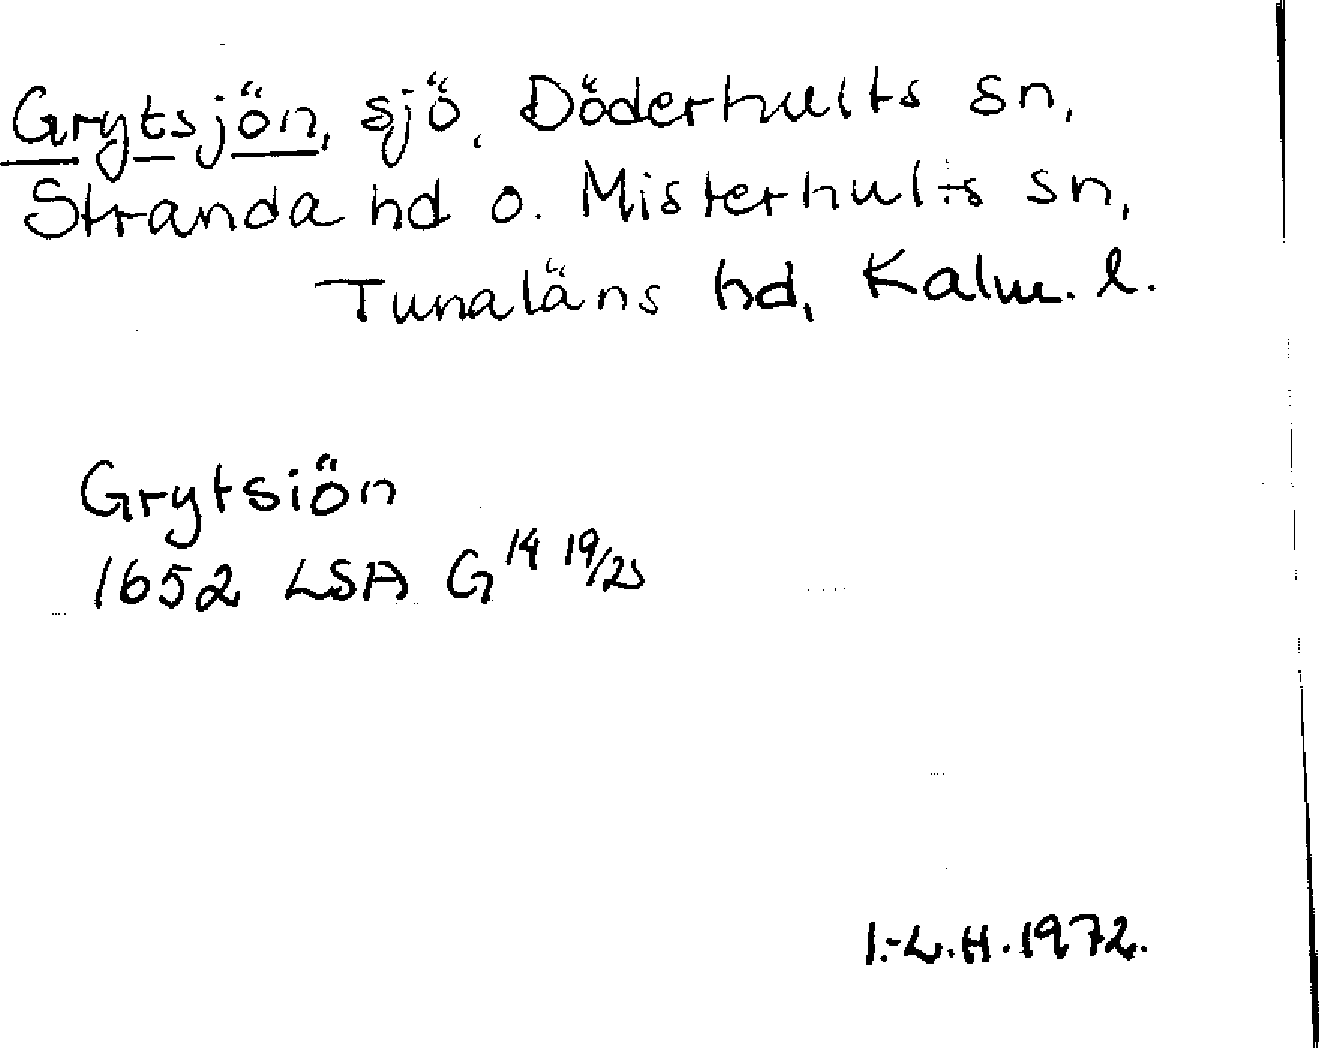 Grytsjön, sjö, Döderhults sn,
Stranda hd o. Misterhults sn,
Tunaläns hd, Kalm. l.
Grytsiön
1652 LSA G 14 19/25
I.-L.H. 1972.